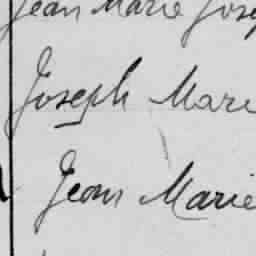 Jean Marie Josep
Joseph Marie
Jean Marie